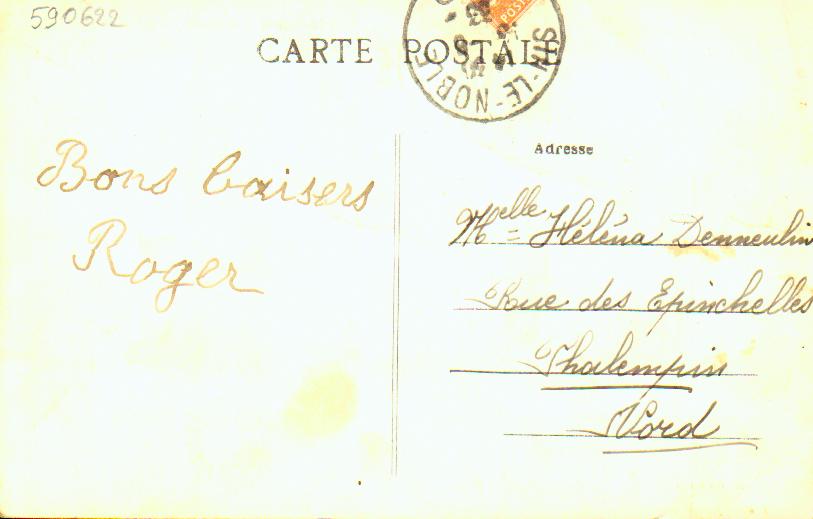 590622
CARTE POSTALE
SIN-LE-NOBLE
POSTA
Bons baisers
Roger
Adresse
Melle Héléna Denneulin
Rue des Epinchelles
Phalempin
Nord